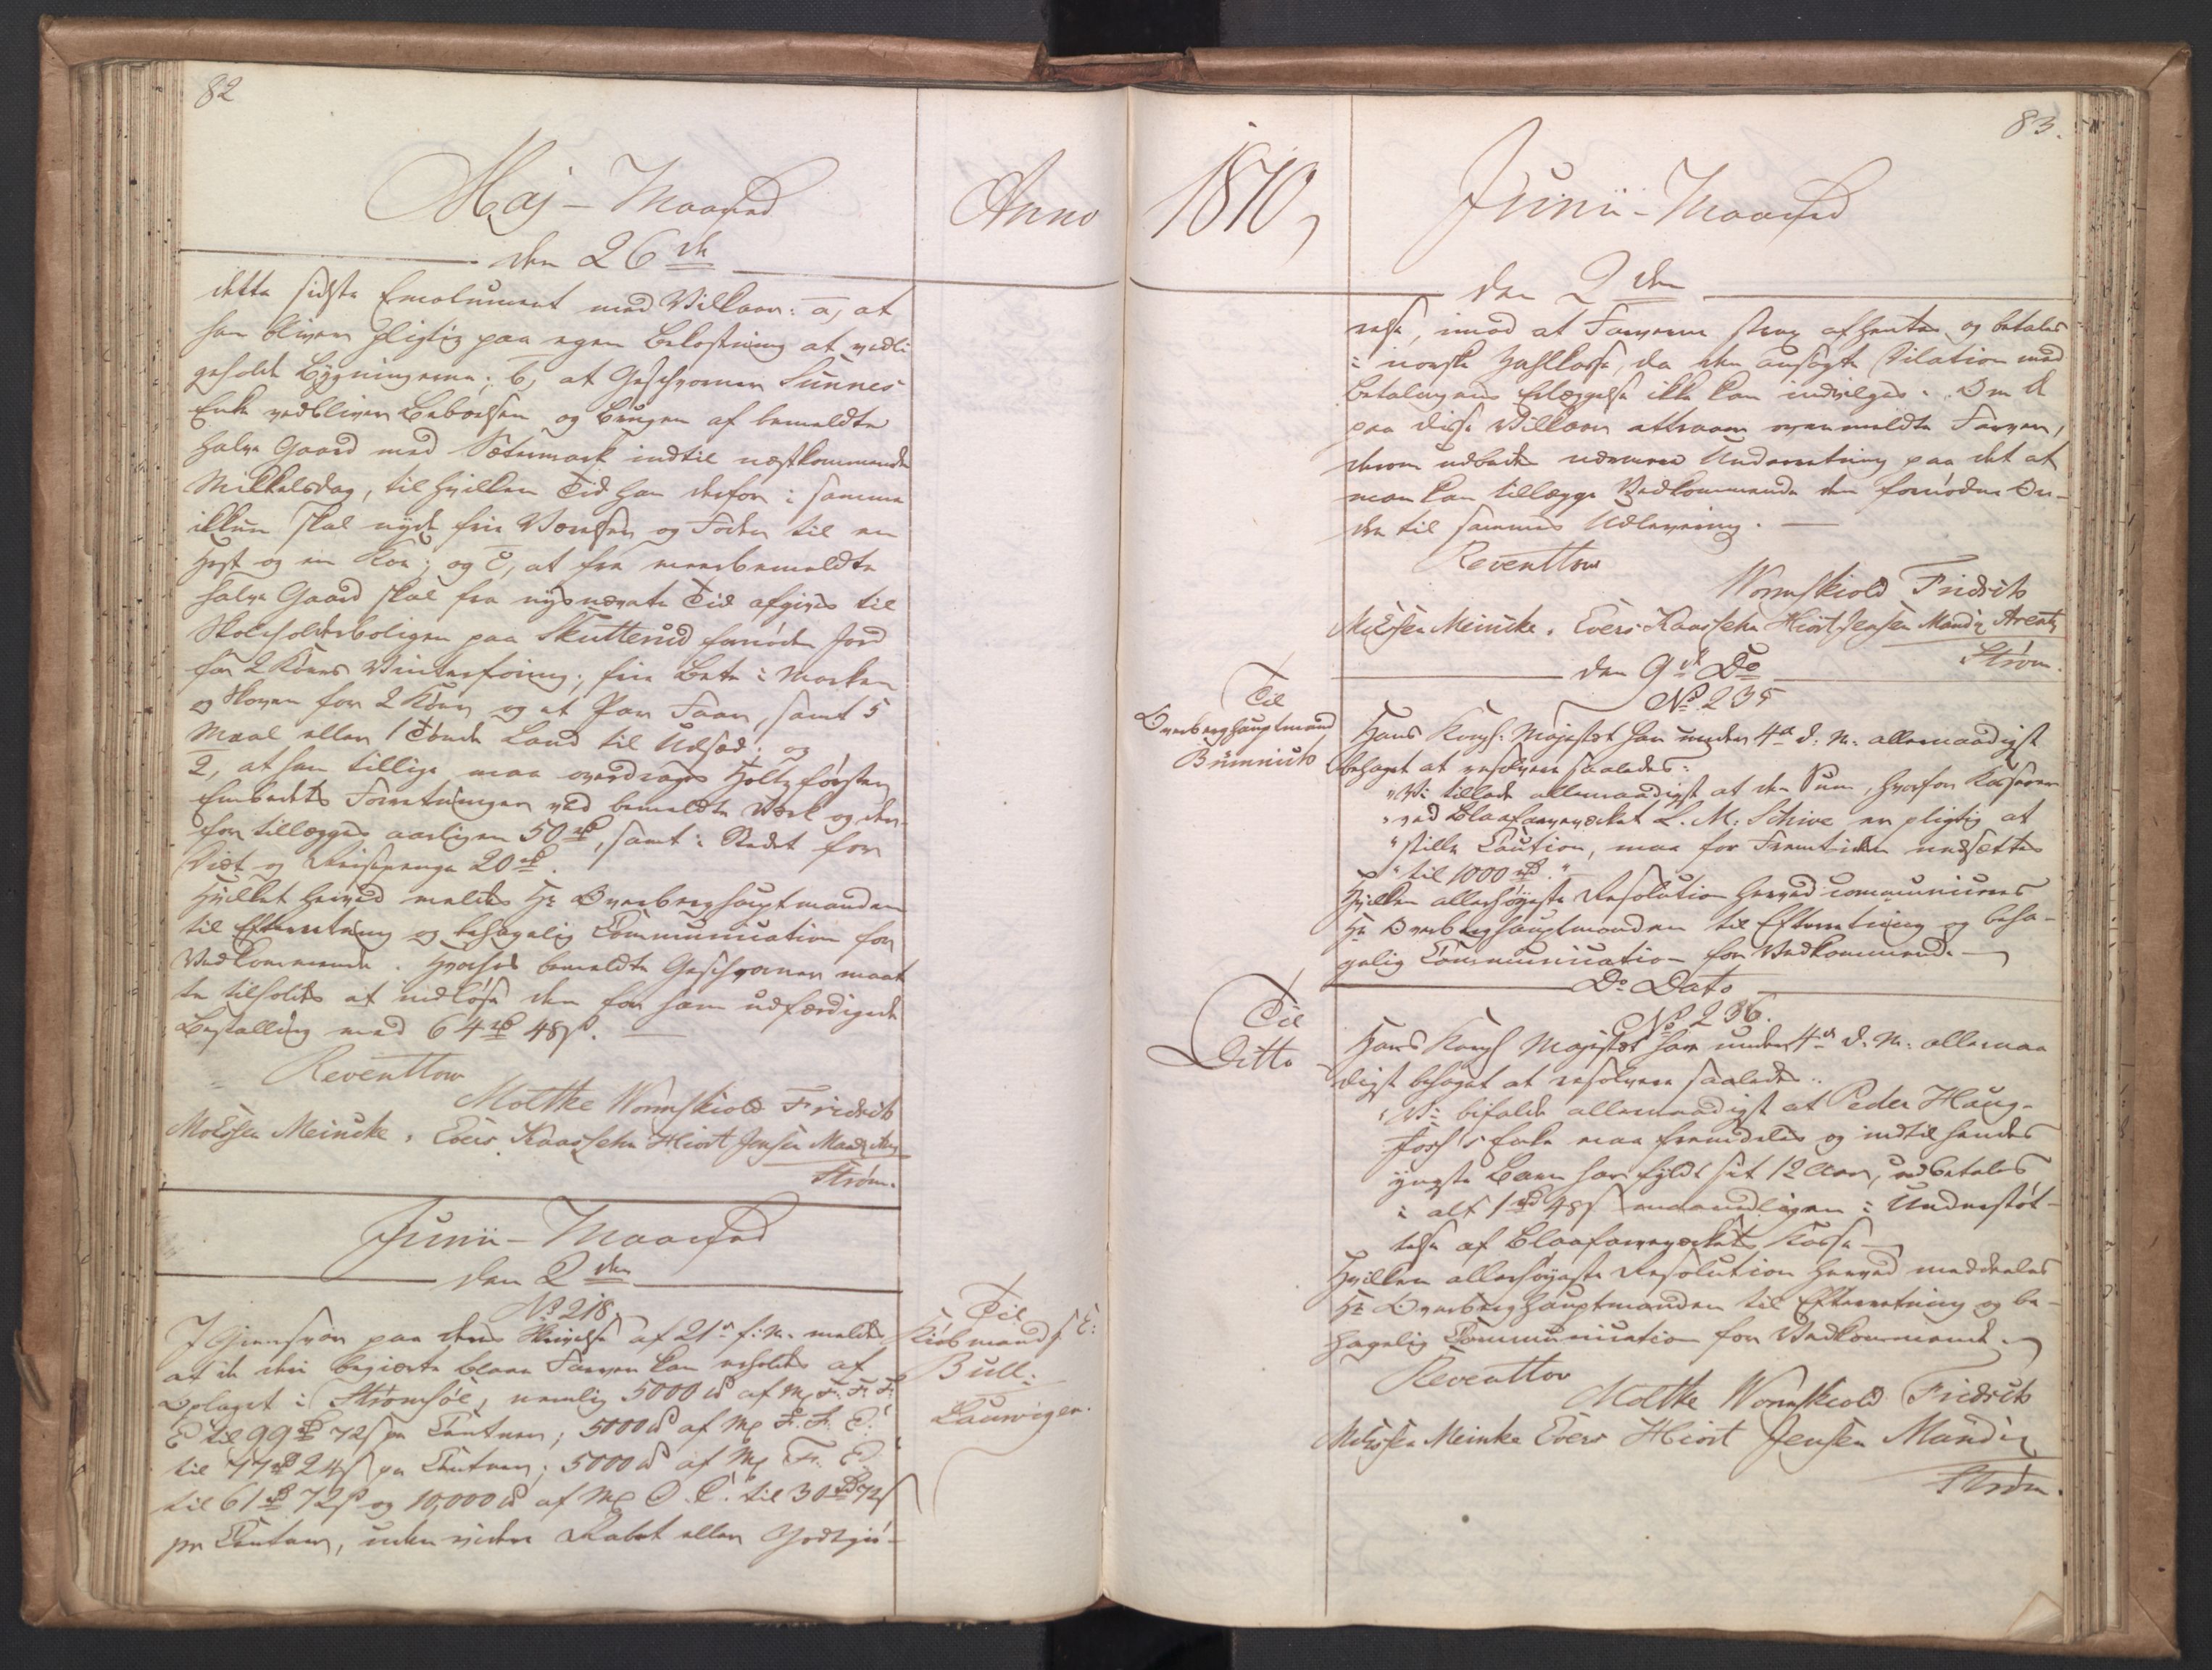 82
Maj - Maaned
Anno
den 26de
dette sidste Emolument med Vilkaar: a, at
han bliver pligtig paa egen Bekostning at vedli
geholde Bygningerne; b, at Geschvorner Sunnes
Enke vedbliver Beboelsen og Brugen af bemeldte
halve Gaard med Sætermark indtil næstkommende
Mikkelsdag, til hvilken Tid han derfor i samme
ikkun skal nyde frie Værelser og Foder til en
Hest og en Koe; og c, at fra meerbemeldte
halve Gaard skal fra nysnævnte Tid afgives til
Skoleholderboligen paa Skutterud fornøden Jord
for 2 Køers Vinterfoering; frie Bete i Marken
og Skoven for 2 Køer og et Par Faar, samt 5
Maal eller 1 Tønde Land til Udsæd; og
2, at han tillige maa overdrages Holtzførster
Embedets Forretninger ved bemeldte Værk og der-
for tillægges aarligen 50 rd, samt i Stedet for
Diæt og Reisepenge 20 rd.
Hvilket herved meldes Hr Overberghauptmanden
til Efterretning og behagelig Communication for
Vedkommende. Hvorhos bemeldte Geschvorner maat
te tilholdes at indløse den for ham udfærdigede
Bestalling med 64 rd 48 s.
Reventlow
Moltke Wormskiold Fridrich
Mössen Meincke. Evers Kaas Hiort Jensen Mandix
Strøm.
Junii - Maaned
den 2den
No 218
Til
Kiøbmand S. E:
Bull.
Laurvigen.
I Giensvar paa Deres Skrivelse af 21de f: M. meldes
at de den begiærte blaae Farver kan erholdes af
Oplaget i Strømsøe, nemlig 5000 lb af M F. F. F.
E til 99 rd 72 s pr Centner; 5000 lb af M F. F. E.
til 77 rd 24 s pr Centner; 5000 lb af M F. E.
til 61 rd 72 s og 10,000 lb af M O. E. til 30 rd 72 s
pr Centner, uden videre Rabat eller Godtgiø-
83.
1810,
Junii - Maaned
den 2den
relse, imod at Farverne strax afhentes og betales
i norske Zahlkasse, da den ansøgte Dilation med
Betalingens Erlæggelse ikke kan indvilges. Om De
paa disse Vilkaar attraaer ovenmeldte Farver,
derom udbedes nærmere Underretning paa det at
man kan tillægge Vedkommende den fornødne Or-
dre til sammes Udlevering.
Reventlow
Wormskiold Fridrich
Mössen Meincke. Evers Kaas Hiort Jensen Mandix Arentz
Strøm.
den 9de Do
No 235
Til
Overberghauptmand
Brünnich
Hans Kongl: Majestæt har under 4de d: M: allernaadigst
behaget at resolvere saaledes:
"Vi tillade allernaadigst at den Sum, hvorfor Kasserer
"ved Blaafarveværket L. M. Schive er pligtig at
"stille Caution, maa for Fremtiden nedsættes
"til 1000 rd."
Hvilken allerhøyeste Resolution herved communiceres
Hr Overberghauptmanden til Efterretning og beha-
gelig Communication for Vedkommende.
Do Dato
No 236.
Til
Ditto
Hans Kongl Majestæt har under 4de d. M. allernaa
digst behaget at resolvere saaledes:
"Vi bifalde allernaadigst at Peder Haug-
foss's Enke maa fremdeles og indtil hendes
yngste Barn har fyldt sit 12 Aar, udbetales
i alt 1 rd 48 s maanedligen i Understøt-
telse af Blaafarveværkets Kasse
Hvilken allerhøyeste Resolution herved meddeeles
Hr Overberghauptmanden til Efterretning og be-
hagelig Communication for Vedkommende.
Reventlow
Moltke Wormskiold Fridrich
Mössen Meinke Evers Hiort Jensen Mandix
Strøm.